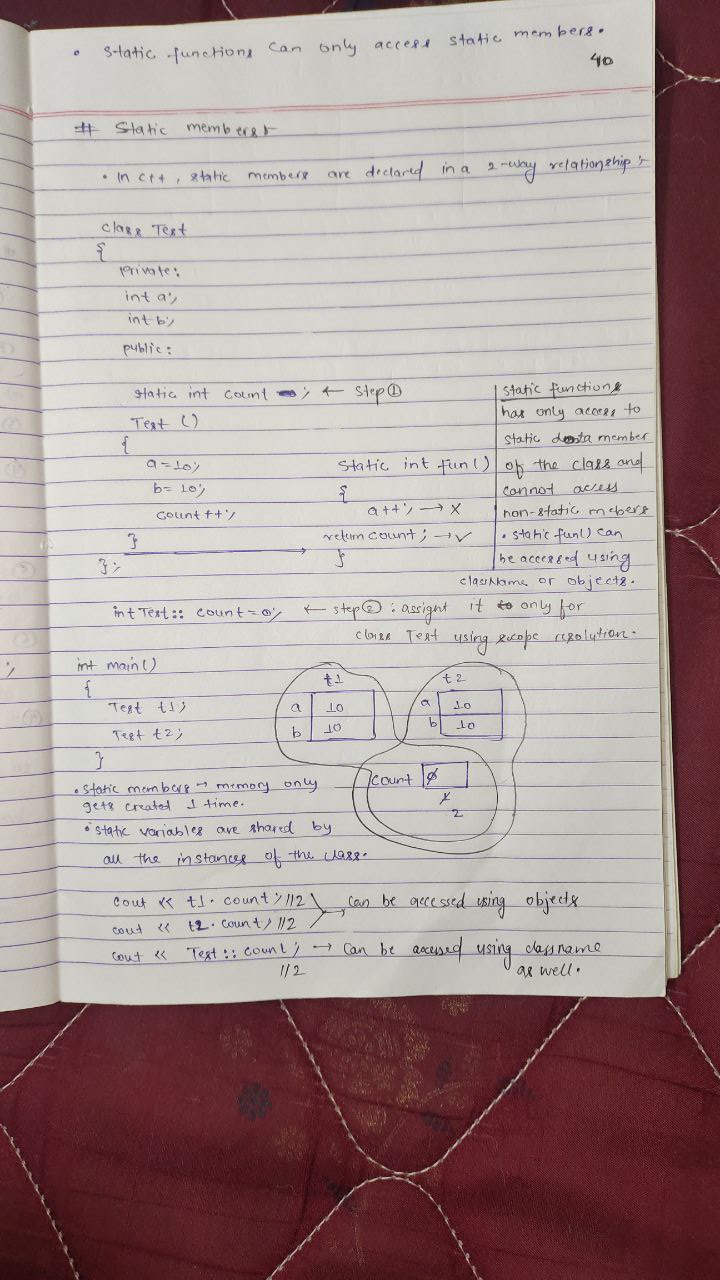 • Static functions can only access static members.
40
# Static members :-
• In C++, static members are declared in a 2-way relationship :-
class Test
{
private:
int a;
int b;
public:
static int count ; ← Step ①
Test ()
{
a = 10;
b = 10;
count++;
}
};
static int fun()
{
a++; → X
return count; → ✓
}
static functions
has only access to
static data member
of the class and
cannot access
non-static mebers
• static fun() can
be accessed using
className or objects.
int Test :: count = 0; ← step ② : assignt it only for
class Test using scope resolution.
int main()
{
Test t1;
Test t2;
}
t1
a 10
b 10
t2
a 10
b 10
count 0
1
2
• static members → memory only
gets created 1 time.
• static variables are shared by
all the instances of the class.
cout << t1. count; //2
cout << t2. count; //2
can be accessed using objects
cout << Test :: count; → Can be accessed using classname
//2 as well.